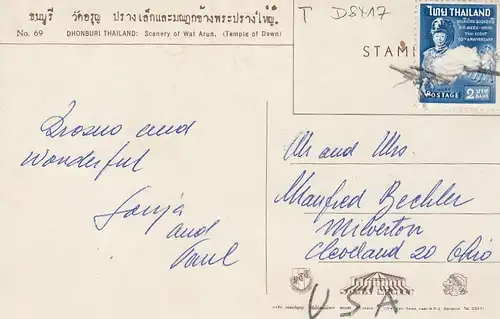 ธนบุรี วัดอรุณ ปรางเล็กและมณฑปข้างพระปรางใหญ่.
No. 69 DHONBURI THAILAND: Scenery of Wat Arun. (Temple of Dawn)
T D8417
STAM
ไทย THAILAND
POSTAGE 2 BAHT
and
wonderful
Sonja
and
Paul
Mr and Mrs.
Manfred Bechler
Milverton
Cleveland 20 Ohio
USA